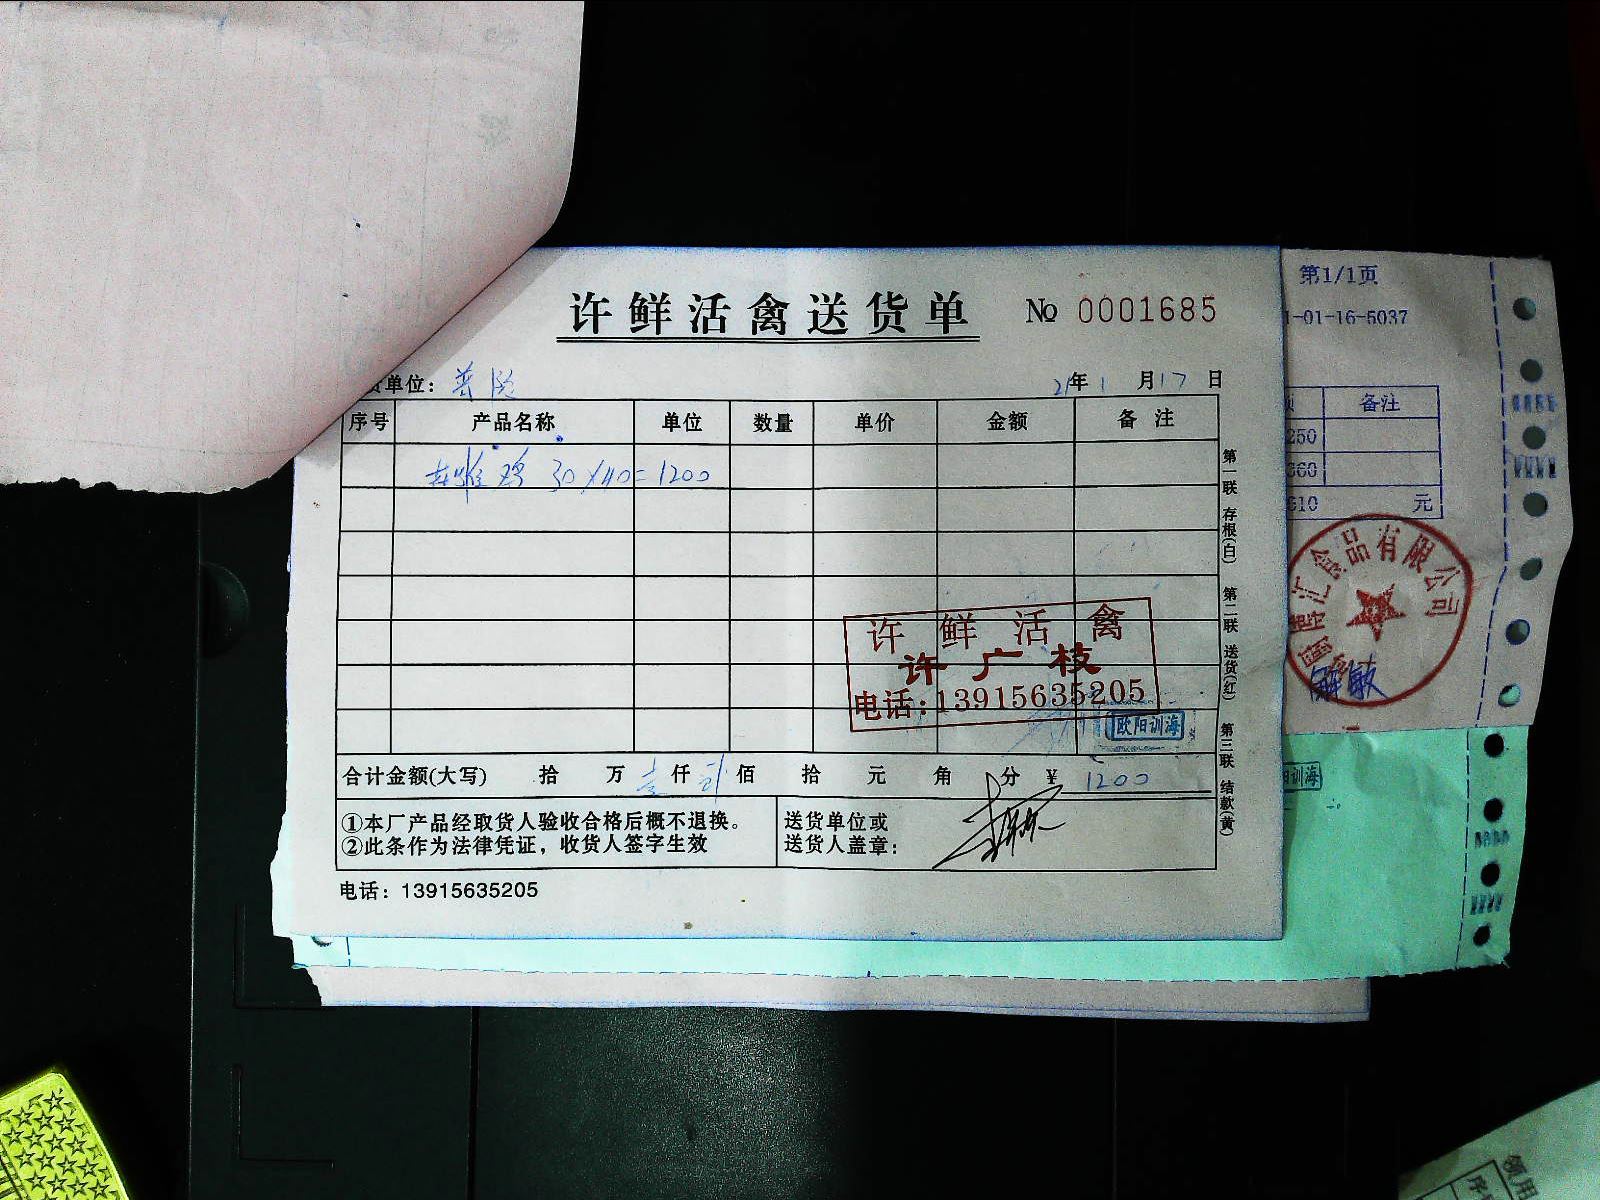 许鲜活禽送货单 № 0001685
单位: 21年1月17日
序号 产品名称 单位 数量 单价 金额 备注
鸡 30×40=1200
第一联 存根(白) 第二联 送货(红) 第三联 结款(黄)
许鲜活禽
许广枝
电话:13915635205
欧阳训海
合计金额(大写) 拾 万 壹仟 贰佰 拾 元 角 分 ¥ 1200
①本厂产品经取货人验收合格后概不退换。
②此条作为法律凭证，收货人签字生效
送货单位或
送货人盖章:
电话: 13915635205
第1/1页
1-01-16-5037
备注
250
360
610 元
汇食品有限公司
训海
领用
序